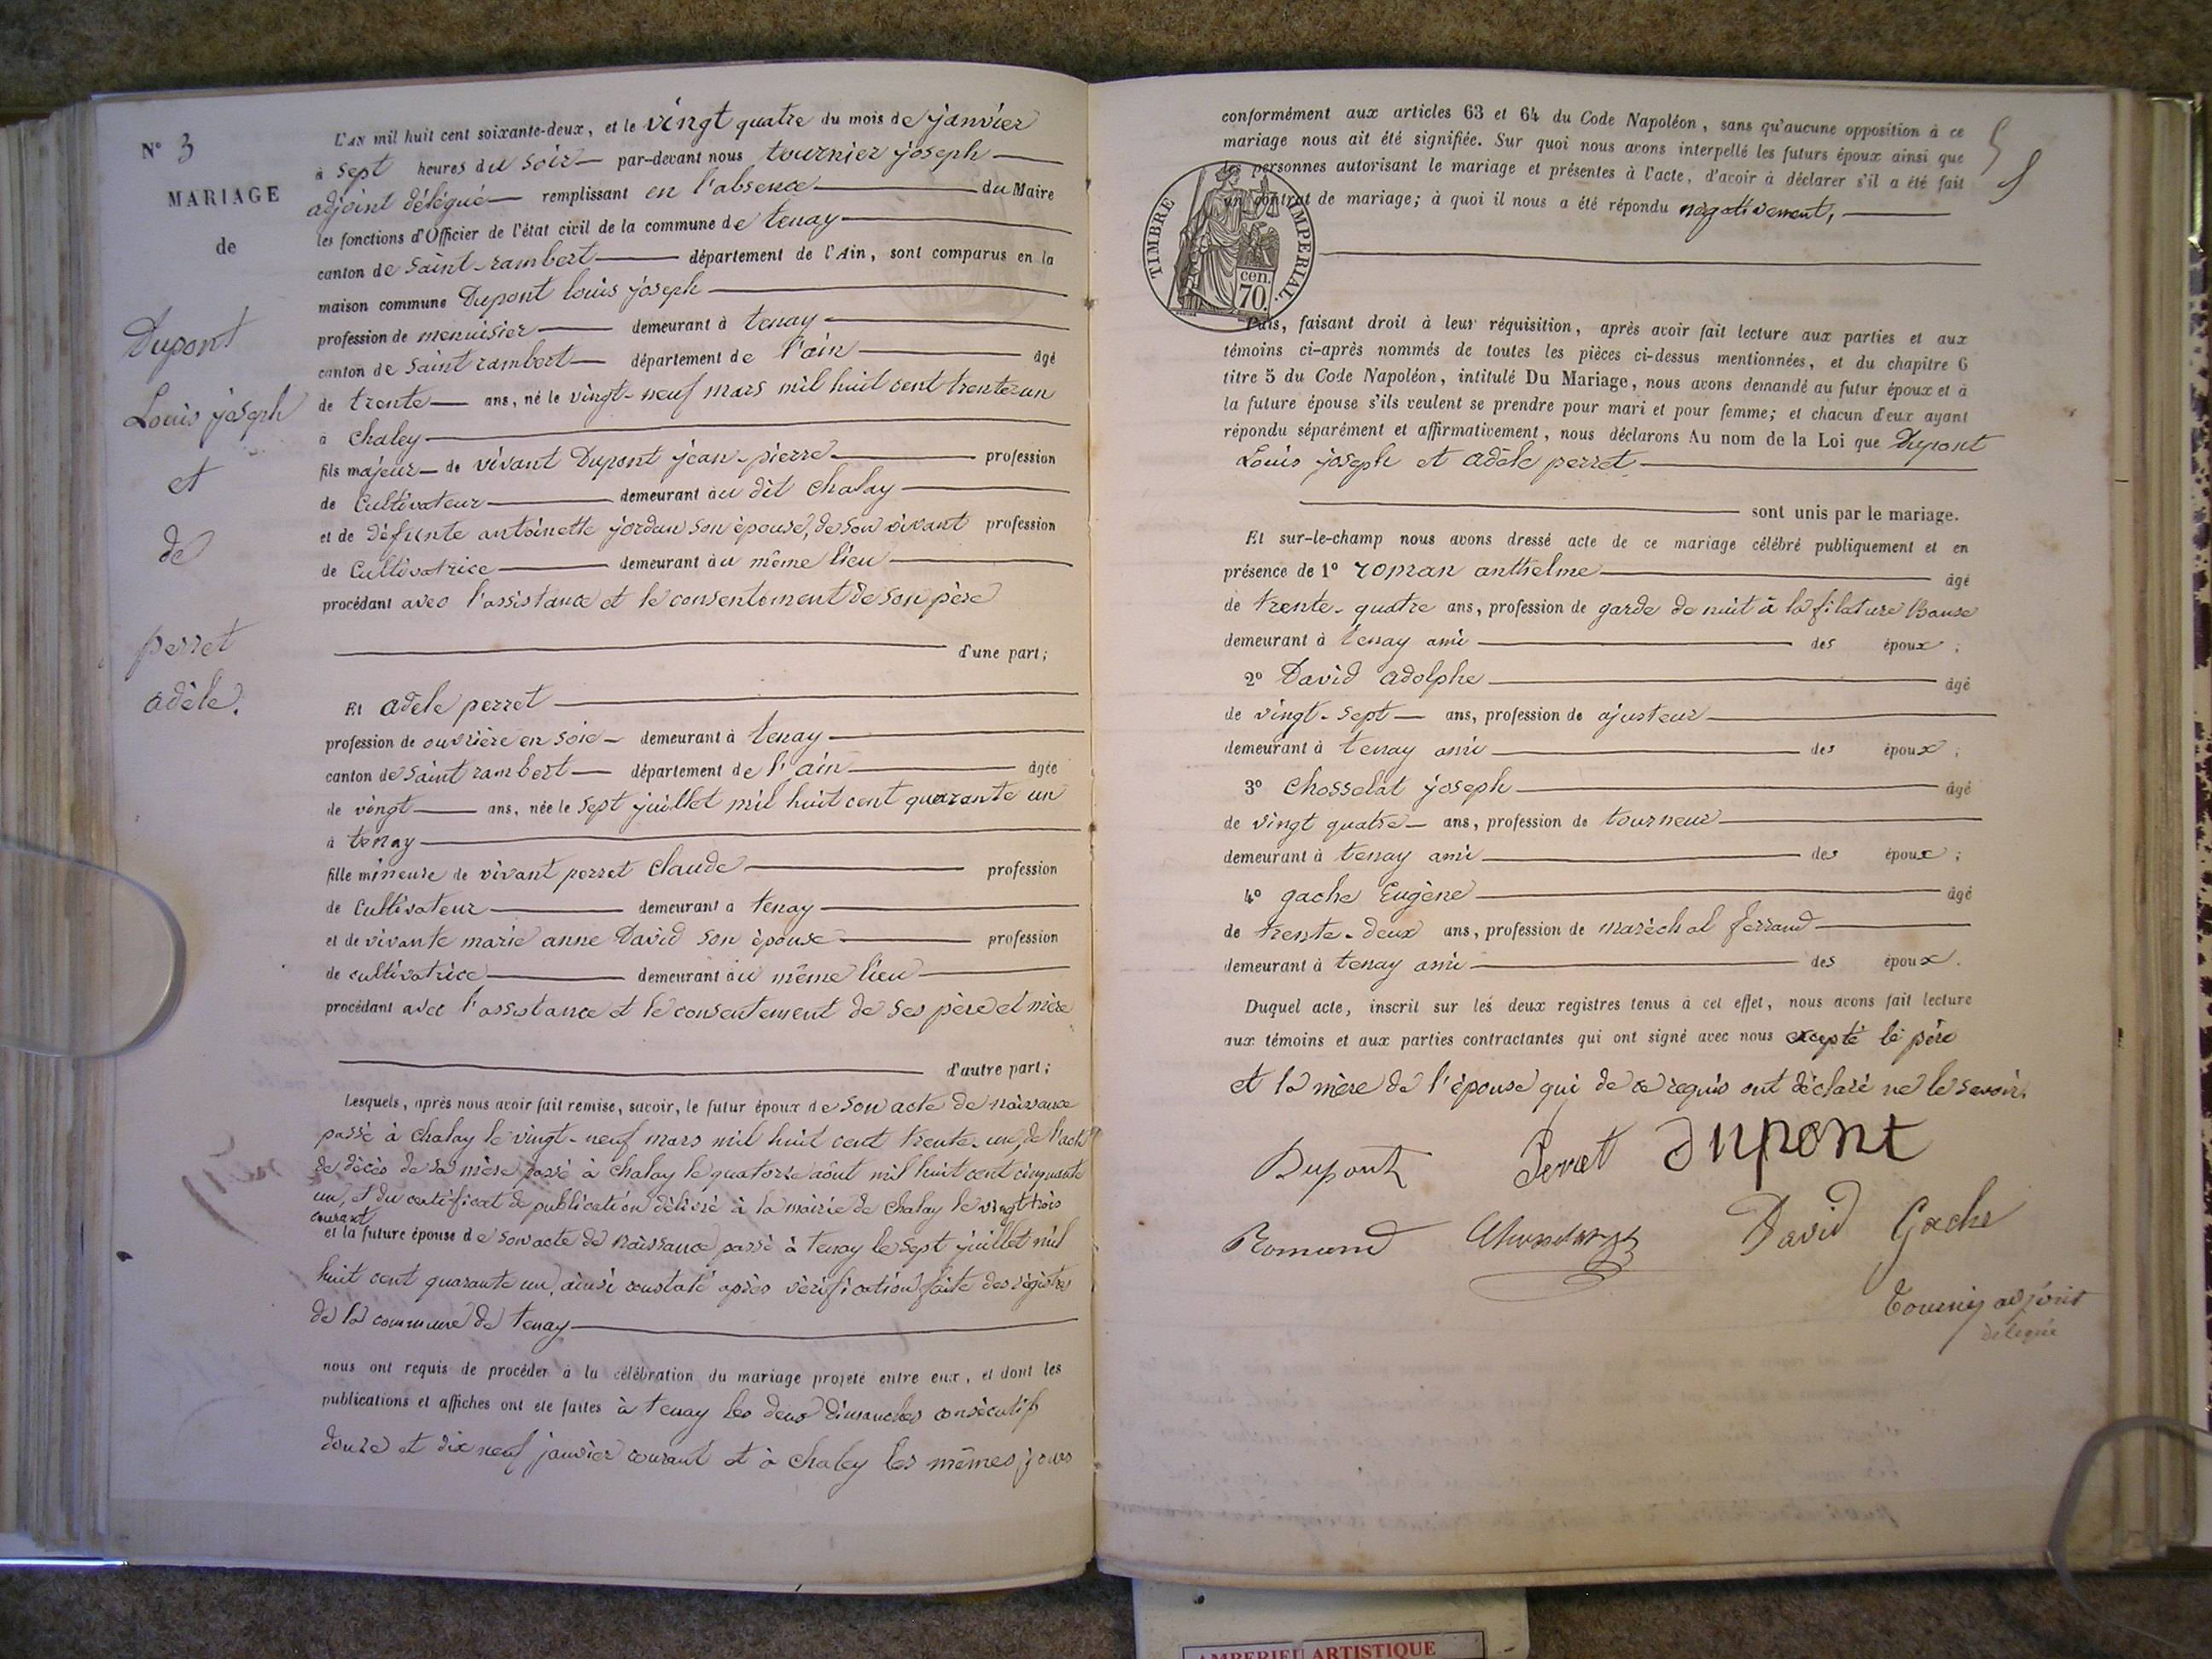 N° 3
MARIAGE
de
Dupont
Louis joseph
et
de
perret
adèle.
L'AN mil huit cent soixante-deux, et le vingt quatre du mois de janvier
à sept heures du soir par-devant nous tournier joseph
adjoint délégué remplissant en l'absence du Maire
les fonctions d'Officier de l'état civil de la commune de tenay
canton de Saint-rambert département de l'Ain, sont comparus en la
maison commune Dupont louis joseph
profession de menuisier demeurant à tenay
canton de Saint rambert département de l'ain âgé
de trente ans, né le vingt-neuf mars mil huit cent trente-un
à chaley
fils majeur de vivant Dupont jean-pierre profession
de Cultivateur demeurant au dit chaley
et de défunte antoinette jordan son épouse, de son vivant profession
de Cultivatrice demeurant au même lieu
procédant avec l'assistance et le consentement de son père
d'une part;
Et adèle perret
profession de ouvrière en soie demeurant à tenay
canton de Saint rambert département de l'ain âgée
de vingt ans, née le sept juillet mil huit cent quarante un
à tenay
fille mineure de vivant perret Claude profession
de Cultivateur demeurant à tenay
et de vivante marie anne David son épouse profession
de cultivatrice demeurant au même lieu
procédant avec l'assistance et le consentement de ses père et mère
d'autre part;
Lesquels, après nous avoir fait remise, savoir, le futur époux de son acte de naissance
passé à chaley le vingt-neuf mars mil huit cent trente-un, de l'acte
de décès de sa mère passé à chaley le quatorze août mil huit cent cinquante
un, et du certificat de publication délivré à la mairie de chaley le vingt trois
courant
et la future épouse de son acte de naissance passé à tenay le sept juillet mil
huit cent quarante un, ainsi constaté après vérification faite des régistres
de la commune de tenay
nous ont requis de procéder à la célébration du mariage projeté entre eux, et dont les
publications et affiches ont été faites à tenay les deux dimanches consécutifs
douze et dix neuf janvier courant et à chaley les mêmes jours
conformément aux articles 63 et 64 du Code Napoléon, sans qu'aucune opposition à ce
mariage nous ait été signifiée. Sur quoi nous avons interpellé les futurs époux ainsi que
les personnes autorisant le mariage et présentes à l'acte, d'avoir à déclarer s'il a été fait
un contrat de mariage; à quoi il nous a été répondu négativement,
TIMBRE IMPERIAL.
cen.
70.
Puis, faisant droit à leur réquisition, après avoir fait lecture aux parties et aux
témoins ci-après nommés de toutes les pièces ci-dessus mentionnées, et du chapitre 6
titre 5 du Code Napoléon, intitulé Du Mariage, nous avons demandé au futur époux et à
la future épouse s'ils veulent se prendre pour mari et pour femme; et chacun d'eux ayant
répondu séparément et affirmativement, nous déclarons Au nom de la Loi que Dupont
Louis joseph et adèle perret
sont unis par le mariage.
Et sur-le-champ nous avons dressé acte de ce mariage célébré publiquement et en
présence de 1° roman anthelme âgé
de trente-quatre ans, profession de garde de nuit à la filature
demeurant à tenay ami des époux;
2° David adolphe âgé
de vingt-sept ans, profession de ajusteur
demeurant à tenay ami des époux;
3° Chosselat joseph âgé
de vingt quatre ans, profession de tourneur
demeurant à tenay ami des époux;
4° gache Eugène âgé
de trente-deux ans, profession de maréchal ferrand
demeurant à tenay ami des époux.
Duquel acte, inscrit sur les deux registres tenus à cet effet, nous avons fait lecture
aux témoins et aux parties contractantes qui ont signé avec nous excepté le père
et la mère de l'épouse qui de ce requis ont déclaré ne le savoir.
Dupont Perret dupont
Romand David Gache
adjoint
délégué
AMBERIEU ARTISTIQUE